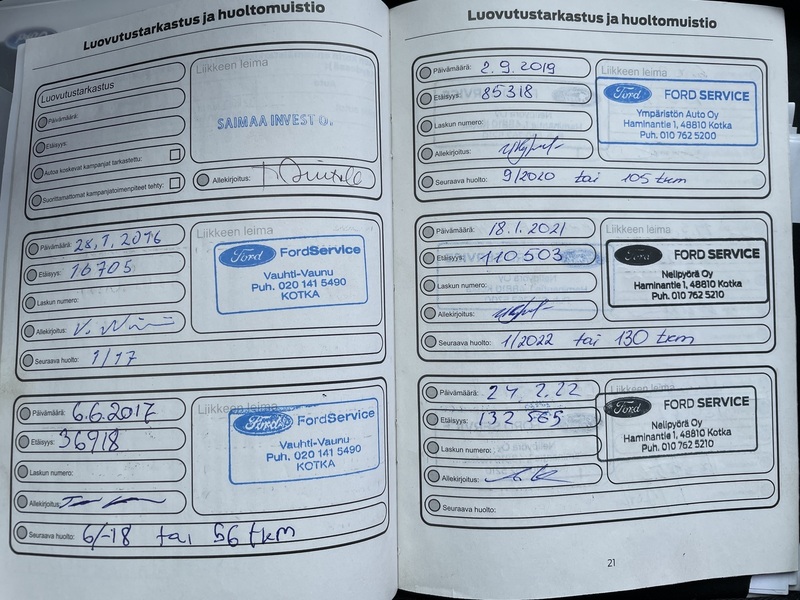 Luovutustarkastus ja huoltomuistio
Luovutustarkastus
Päivämäärä:
Etäisyys:
Autoa koskevat kampanjat tarkastettu:
Suorittamattomat kampanjatoimenpiteet tehty:
Liikkeen leima
SAIMAA INVEST O
Allekirjoitus:
Päivämäärä: 28.1.2016
Etäisyys: 16705
Laskun numero:
Allekirjoitus:
Seuraava huolto: 1/17
Liikkeen leima
Ford FordService
Vauhti-Vaunu
Puh. 020 141 5490
KOTKA
Päivämäärä: 6.6.2017
Etäisyys: 36918
Laskun numero:
Allekirjoitus:
Seuraava huolto: 6/-18 tai 56 tkm
Liikkeen leima
Ford FordService
Vauhti-Vaunu
Puh. 020 141 5490
KOTKA
Luovutustarkastus ja huoltomuistio
Päivämäärä: 2.9.2019
Etäisyys: 85318
Laskun numero:
Allekirjoitus:
Seuraava huolto: 9/2020 tai 105 tkm
Liikkeen leima
Ford FORD SERVICE
Ympäristön Auto Oy
Haminantie 1, 48810 Kotka
Puh. 010 762 5200
Päivämäärä: 18.1.2021
Etäisyys: 110503
Laskun numero:
Allekirjoitus:
Seuraava huolto: 1/2022 tai 130 tkm
Liikkeen leima
Ford FORD SERVICE
Nelipyörä Oy
Haminantie 1, 48810 Kotka
Puh. 010 762 5210
Päivämäärä: 24 2.22
Etäisyys: 132 565
Laskun numero:
Allekirjoitus:
Seuraava huolto:
Liikkeen leima
Ford FORD SERVICE
Nelipyörä Oy
Haminantie 1, 48810 Kotka
Puh. 010 762 5210
21